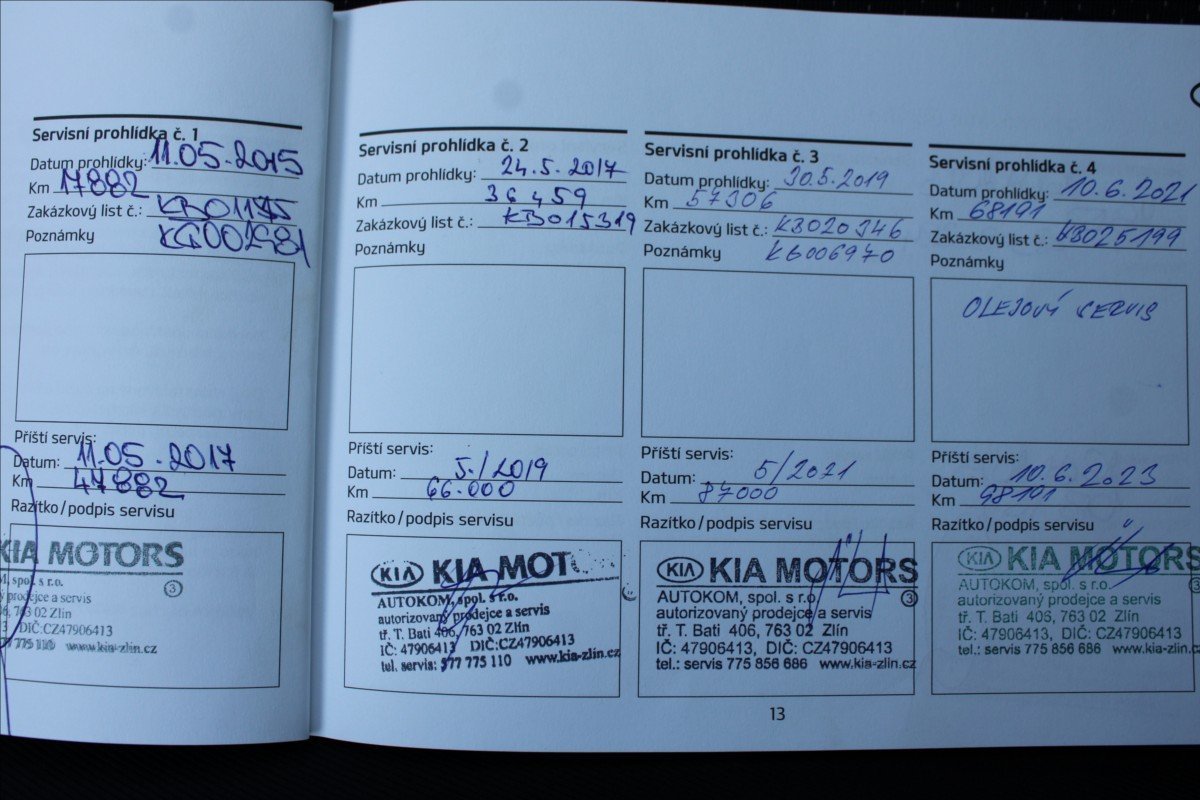 Servisní prohlídka č. 1
Datum prohlídky: 11.05.2015
Km 17882
Zakázkový list č.:
Poznámky
Příští servis:
Datum: 11.05.2017
Km 47882
Razítko/podpis servisu
KIA MOTORS
spol. s r.o.
prodejce a servis
763 02 Zlín
DIČ:CZ47906413
775 110 www.kia-zlin.cz
3
Servisní prohlídka č. 2
Datum prohlídky: 24.5.2017
Km 36459
Zakázkový list č.: KB015319
Poznámky
Příští servis:
Datum: 5./2019
Km 66.000
Razítko/podpis servisu
KIA KIA MOT
AUTOKOM, spol. s r.o.
autorizovaný prodejce a servis
tř. T. Bati 406, 763 02 Zlín
IČ: 47906413 DIČ:CZ47906413
tel. servis: 577 775 110 www.kia-zlin.cz
Servisní prohlídka č. 3
Datum prohlídky: 30.5.2019
Km 57306
Zakázkový list č.: KB020346
Poznámky KG006970
Příští servis:
Datum: 5/2021
Km 87000
Razítko/podpis servisu
KIA KIA MOTORS
AUTOKOM, spol. s r.o.
autorizovaný prodejce a servis
tř. T. Bati 406, 763 02 Zlín
IČ: 47906413, DIČ: CZ47906413
tel.: servis 775 856 686 www.kia-zlin.cz
3
Servisní prohlídka č. 4
Datum prohlídky: 10.6.2021
Km 68191
Zakázkový list č.: KB025199
Poznámky
OLEJOVÝ SERVIS
Příští servis:
Datum: 10.6.2023
Km 98191
Razítko/podpis servisu
KIA KIA MOTORS
AUTOKOM, spol. s r.o.
autorizovaný prodejce a servis
tř. T. Bati 406, 763 02 Zlín
IČ: 47906413, DIČ: CZ47906413
tel.: servis 775 856 686 www.kia-zlin.cz
3
13